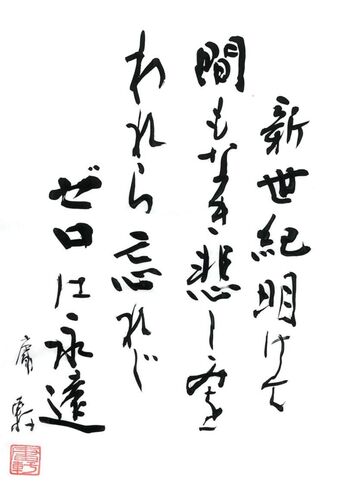 新世紀明けて
間もなき悲しみを
われら忘れじ
ゼロは永遠
庸軒